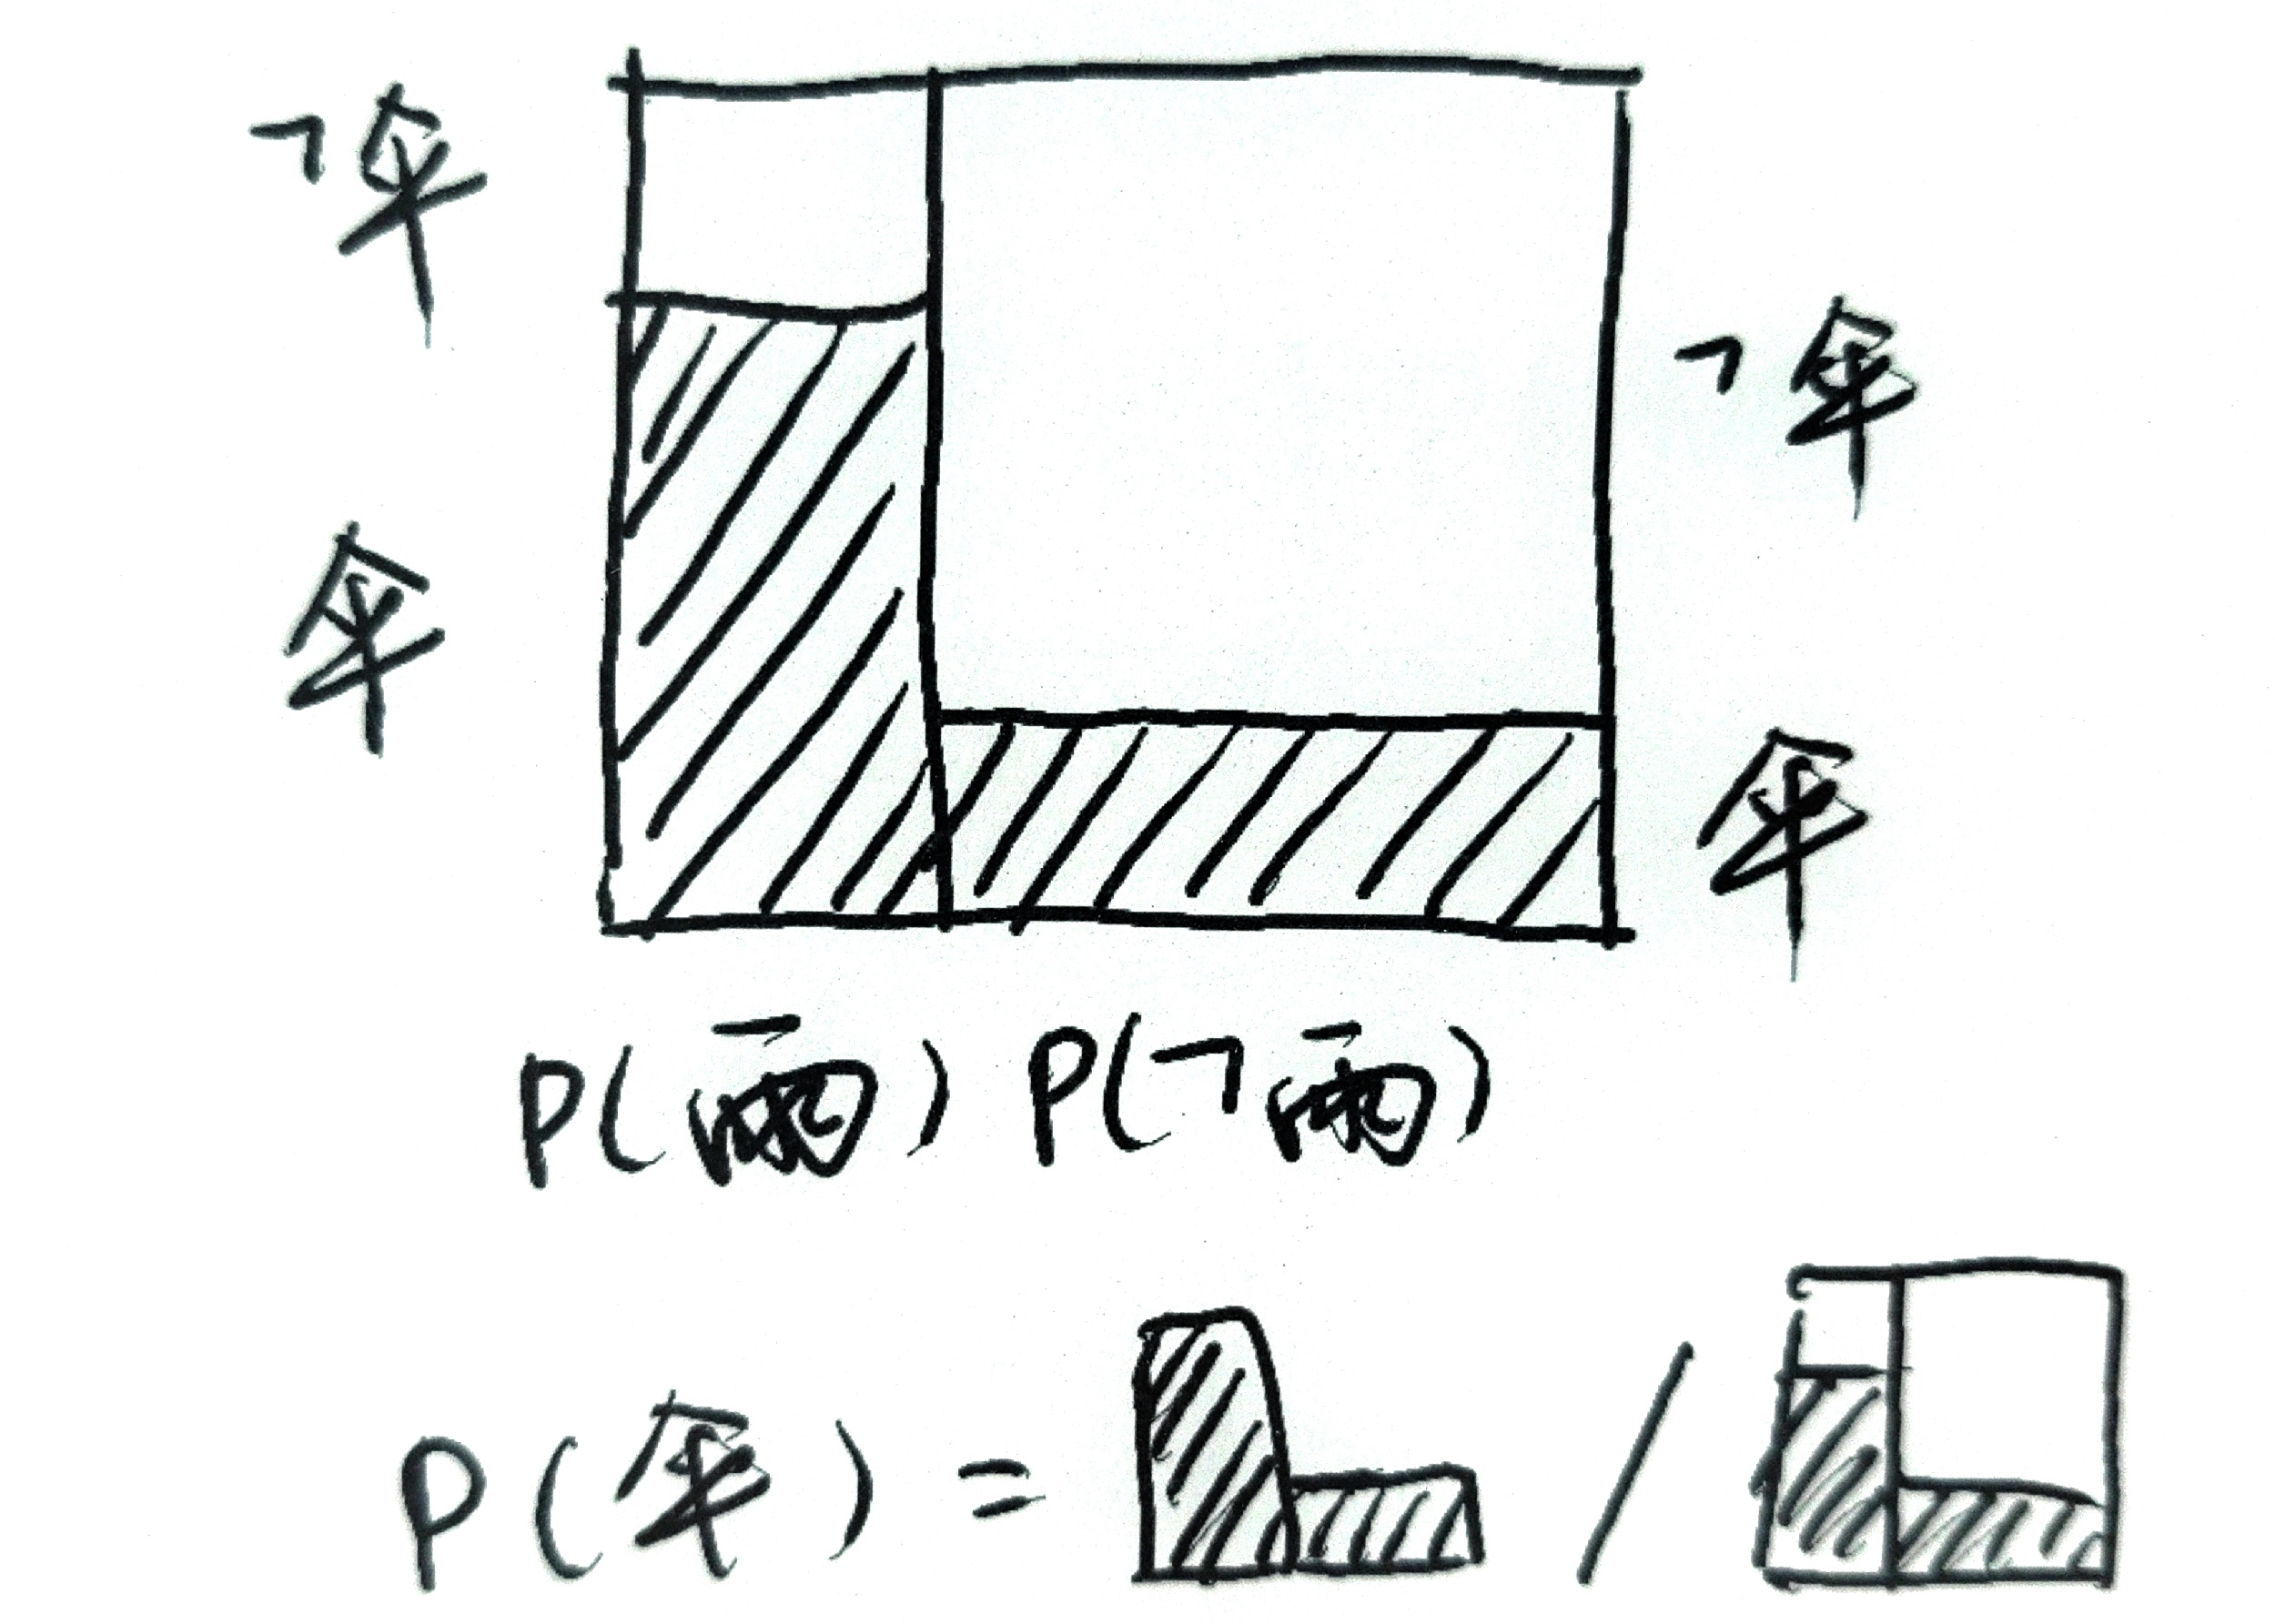 ¬伞
¬伞
伞
伞
P(雨) P(¬雨)
P(伞) = /